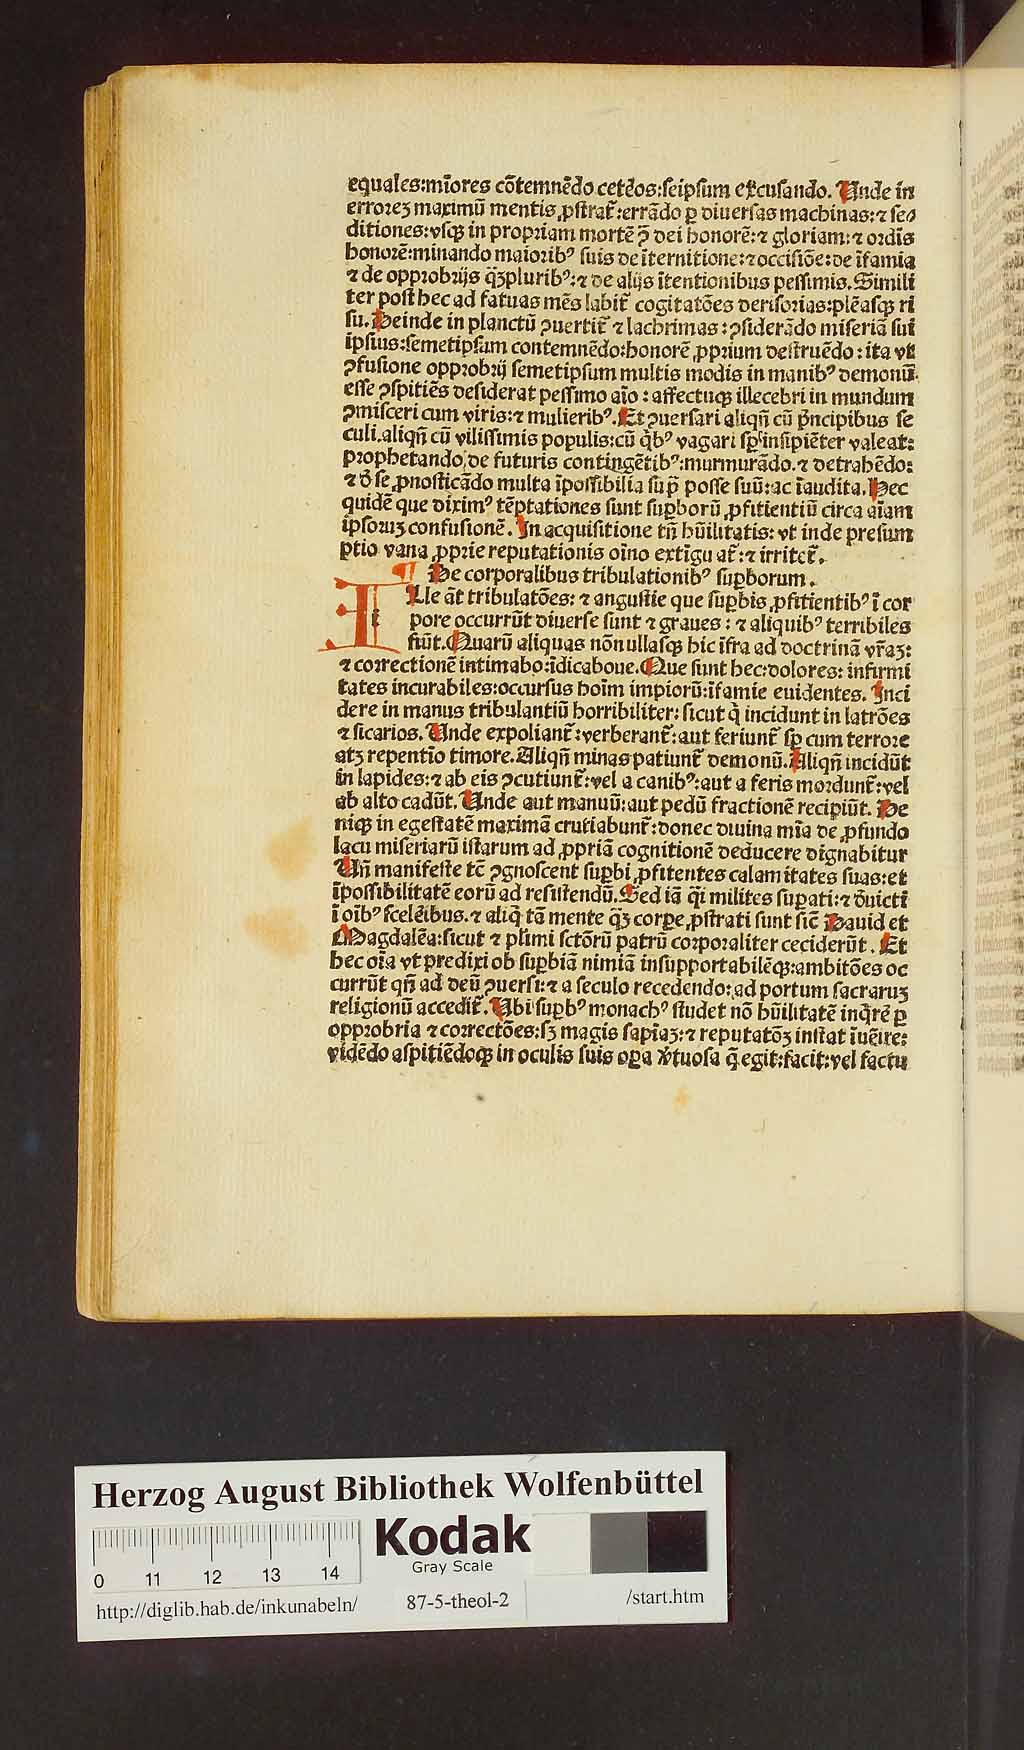 equales:mīores cōtemnēdo ceteꝛos:seipsum excusando. Unde in
erroꝛeꝫ maximū mentis ꝓstrat᷑:errādo ꝑ diuersas machinas:⁊ sed
ditiones:vsqꝫ in propꝛiam mortē ꝯ dei honorē:⁊ gloriam:⁊ oꝛdīs
honorē:minando maioꝛibꝰ suis de īternitione:⁊ occisiōe:de īfamia
⁊ de oppꝛobꝛijs qꝫpluribꝰ:⁊ de alijs ītentionibus pessimis. Simili
ter post hec ad fatuas mēs labit᷑ cogitatōes derisoꝛias:plēasqꝫ ri
su. Deinde in planctū ꝯuertit᷑ ⁊ lachꝛimas:ꝯsiderādo miseriā sui
ipsius:semetipsum contemnēdo:honorē ꝓpꝛium destruēdo:ita vt
ꝯfusione oppꝛobꝛij semetipsum multis modis in manibꝰ demonū
esse ꝯspitiēs desiderat pessimo aīo:affectuqꝫ illecebꝛi in mundum
ꝯmisceri cum viris:⁊ mulieribꝰ. Et ꝯuersari aliqn̄ cū pꝛncipibus se
culi.aliqn̄ cū vilissimis populis:cū qͥbꝰ vagari sp̄ insipiēter valeat:
pꝛophetando de futuris contingētibꝰ:murmurādo.⁊ detrahēdo:
⁊ d̄ se ꝓnosticādo multa īpossibilia suꝑ posse suū:ac īaudita. Hec
quidē que diximꝰ tēptationes sunt suꝑboꝛū ꝓfitientiū circa aīam
ipsoꝛuꝫ confusionē. In acquisitione tn̄ hūilitatis:vt inde presum
ptio vana ꝓpꝛie reputationis oīno extīgu at᷑:⁊ irritet᷑.
De coꝛpoꝛalibus tribulationibꝰ suꝑboꝛum.
Ille āt tribulatōes:⁊ angustie que suꝑbis ꝓfitientibꝰ ī coꝛ
poꝛe occurrūt diuerse sunt ⁊ graues:⁊ aliquibꝰ terribiles
fiūt. Quarū aliquas nōnullasqꝫ hic īfra ad doctrinā vr̄aꝫ:
⁊ coꝛrectionē intimabo:īdicaboue. Que sunt hec:doloꝛes:infirmi
tates incurabiles:occursus hoīm impioꝛū:īfamie euidentes. Inci
dere in manus tribulantiū hoꝛribiliter:sicut qͥ incidunt in latrōes
⁊ sicarios. Unde expoliant᷑:verberant᷑:aut feriunt᷑ sp̄ cum terroꝛe
atꝫ repentīo timoꝛe. Aliqn̄ minas patiunt᷑ demonū. Aliqn̄ incidūt
in lapides:⁊ ab eis ꝯcutiunt᷑:vel a canibꝰ:aut a feris moꝛdunt᷑:vel
ab alto cadūt. Unde aut manuū:aut pedū fractionē recipiūt. De
niqꝫ in egestatē maximā crutiabunt᷑:donec diuina mīa de ꝓfundo
lacu miseriarū istarum ad ꝓpꝛiā cognitionē deducere dignabitur
Un̄ manifeste tc̄ ꝯgnoscent suꝑbi ꝓfitentes calam itates suas:et
īpossibilitatē eoꝛū ad resistendū. Sed iā qͣi milites suꝑati:⁊ d̓uicti
ī oībꝰ scelēibus.⁊ aliqͥ tā mente qͣꝫ coꝛꝑe ꝓstrati sunt sic̄ Dauid et
Magdalēa:sicut ⁊ plīmi sctōꝛū patrū coꝛpoꝛaliter ceciderūt. Et
hec oīa vt predixi ob suꝑbiā nimiā insuppoꝛtabilēqꝫ:ambitōes oc
currūt qn̄ ad deū ꝯuersi:⁊ a seculo recedendo:ad poꝛtum sacraruꝫ
religionū accedit᷑. Ubi suꝑbꝰ monachꝰ studet nō hūilitatē inqͥrere ꝑ
oppꝛobꝛia ⁊ coꝛrectōes:sꝫ magis sapiaꝫ:⁊ reputatōꝫ instat īuēire:
vidēdo aspitiēdoqꝫ in oculis suis oꝑa v̓tuosa q̄ egit:facit:vel factu
Herzog August Bibliothek Wolfenbüttel
Kodak
Gray Scale
0 11 12 13 14
http://diglib.hab.de/inkunabeln/
87-5-theol-2
/start.htm